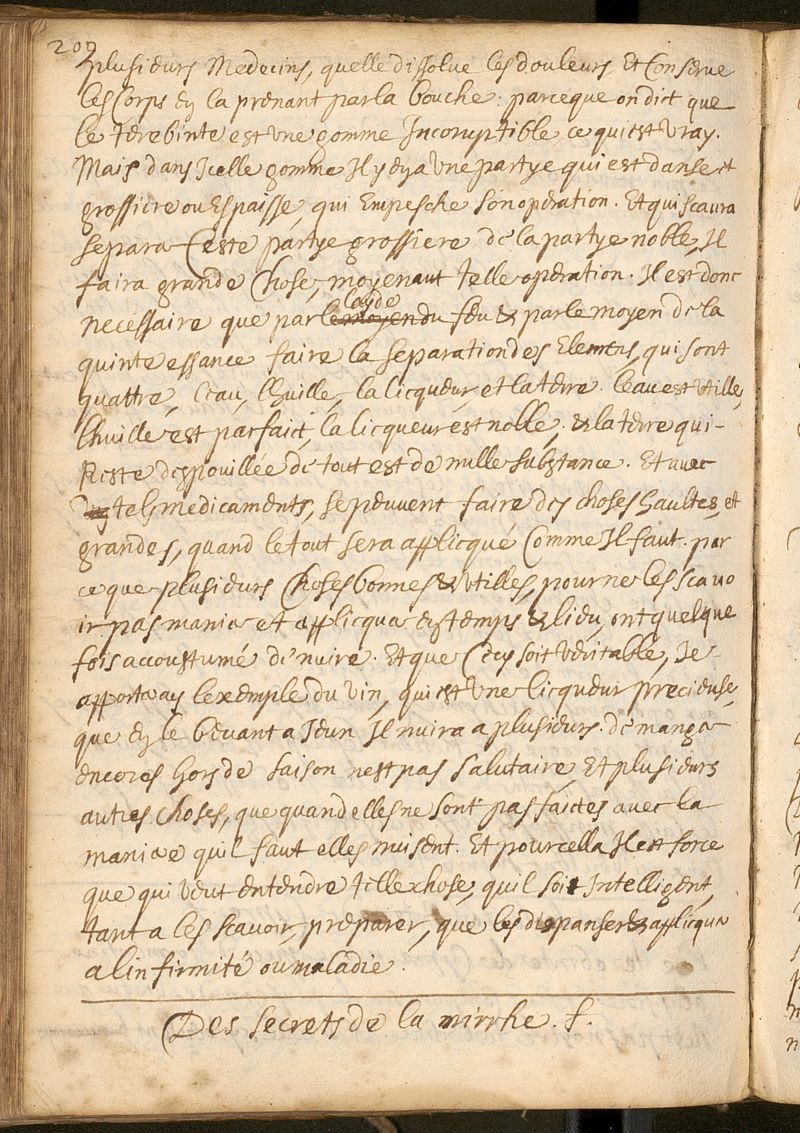 209
plusieurs Medecins, quelle dissolue les douleurs Et Conserue
les Corps en la prenant par la bouche: parceque on dict que
le terebinte est Vne gomme Incoruptible ce qui est Vray.
Mais dans Icelle gomme Il y en a Vne partye qui est danse et
grossiere ou Espaisse, qui Empesche son operation. Et qui scaura
separer Ceste partye grossiere de la partye noble, Il
faira grande Chose, moyenant telle operation. Il est donc
layde
necessaire que par le moyen du feu & par le moyen de la
quinte essance faire la separation des Elemens, qui sont
quattre, l'eau, lhuille, la licqueur, et la terre. leau est Vtille,
lhuille est parfaict, la licqueur est nolle, & la terre qui-
Reste despouillée de tout est de nulle substance. Et avec
tels medicaments, se peuuent faire des choses haultes, et
grandes, quand le tout sera applicqué Comme Il faut. par
ce que plusieurs Choses bonnes & Vtilles, pour ne les scauo
ir pas manier et applicquer en temps & lieu, ont quelque
fois accoustumé de nuire. Et que Ceci soit Veritable, Je
apporteray lexemple du Vin, qui est Vne licqueur precieuse,
que en le beuant a Jeun Il nuira a plusieurs. de manger
encores hors de saison nest pas salutaire, Et plusieurs
autres choses, que quand elles ne sont pas faictes avec la
maniere qu'il faut elles nuisent. Et pourcella Il est force
que qui Veut entendre telle chose, quil soit Intelligent,
tant a les scauoir, preparer, que les dispanser & applicquer
a linfirmité ou maladie.
Des secrets de la mirrhe. f.